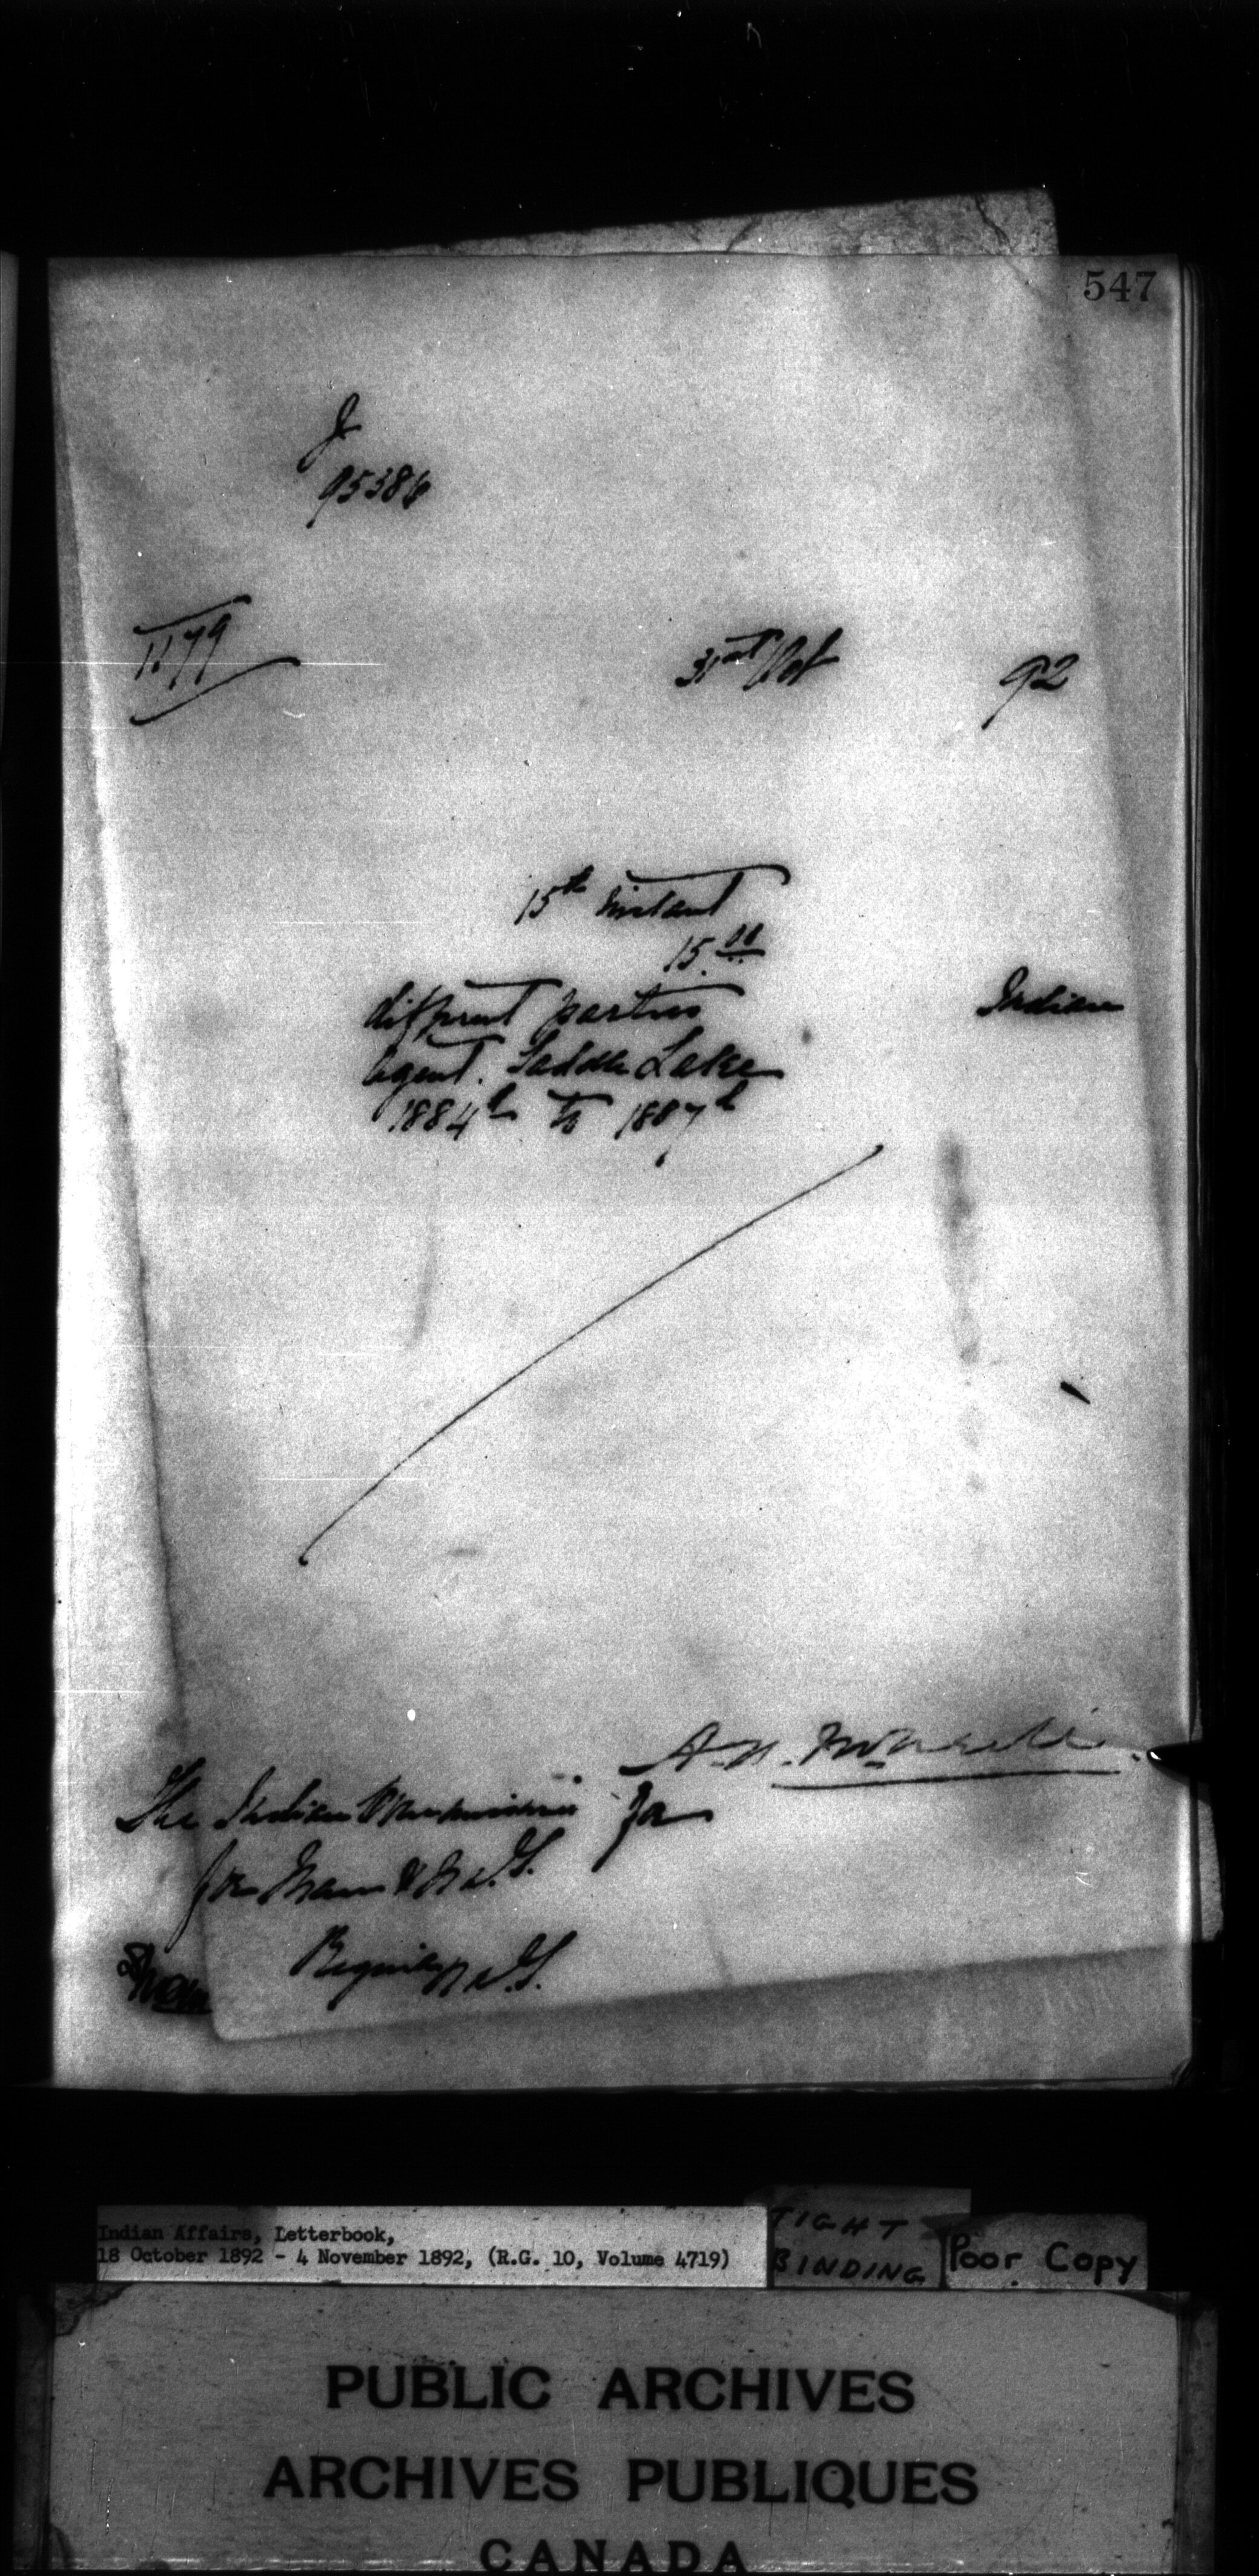 547
J
95386
1179
31st Oct 92
15th instant
15.00
different parties Indian
Agent. Saddle Lake
1884th to 1887th
A. N. McNeill
The Indian Commissioner for
for Man & N.W.T.
Regina N.W.T.
Indian Affairs, Letterbook,
18 October 1892 - 4 November 1892, (R.G. 10, Volume 4719)
TIGHT
BINDING
Poor Copy
PUBLIC ARCHIVES
ARCHIVES PUBLIQUES
CANADA